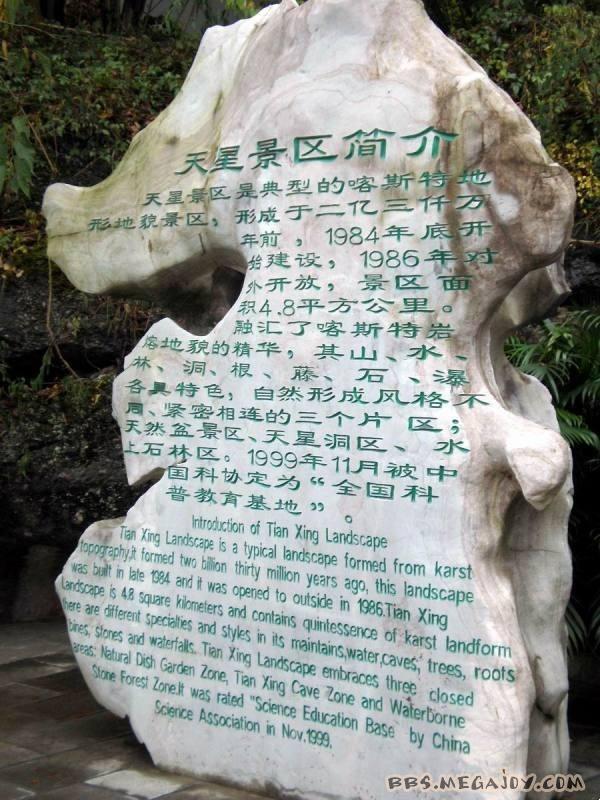 天星景区简介
天星景区是典型的喀斯特地
形地貌景区，形成于二亿三仟万
年前，1984年底开
始建设，1986年对
外开放，景区面
积4.8平方公里。
融汇了喀斯特岩
溶地貌的精华，其山、水、
林、洞、根、藤、石、瀑
各具特色，自然形成风格不
同、紧密相连的三个片区；
天然盆景区、天星洞区、水
上石林区。1999年11月被中
国科协定为“全国科
普教育基地”。
Introduction of Tian Xing Landscape
Tian Xing Landscape is a typical landscape formed from karst
topography.it formed two billion thirty million years ago, this landscape
was built in late 1984 and it was opened to outside in 1986.Tian Xing
Landscape is 4.8 square kilometers and contains quintessence of karst landform
there are different specialties and styles in its maintains,water,caves, trees, roots
bines, stones and waterfalls. Tian Xing Landscape embraces three closed
areas: Natural Dish Garden Zone, Tian Xing Cave Zone and Waterborne
Stone Forest Zone.It was rated "Science Education Base" by China
Science Association in Nov.1999.
BBS.MEGAJOY.COM